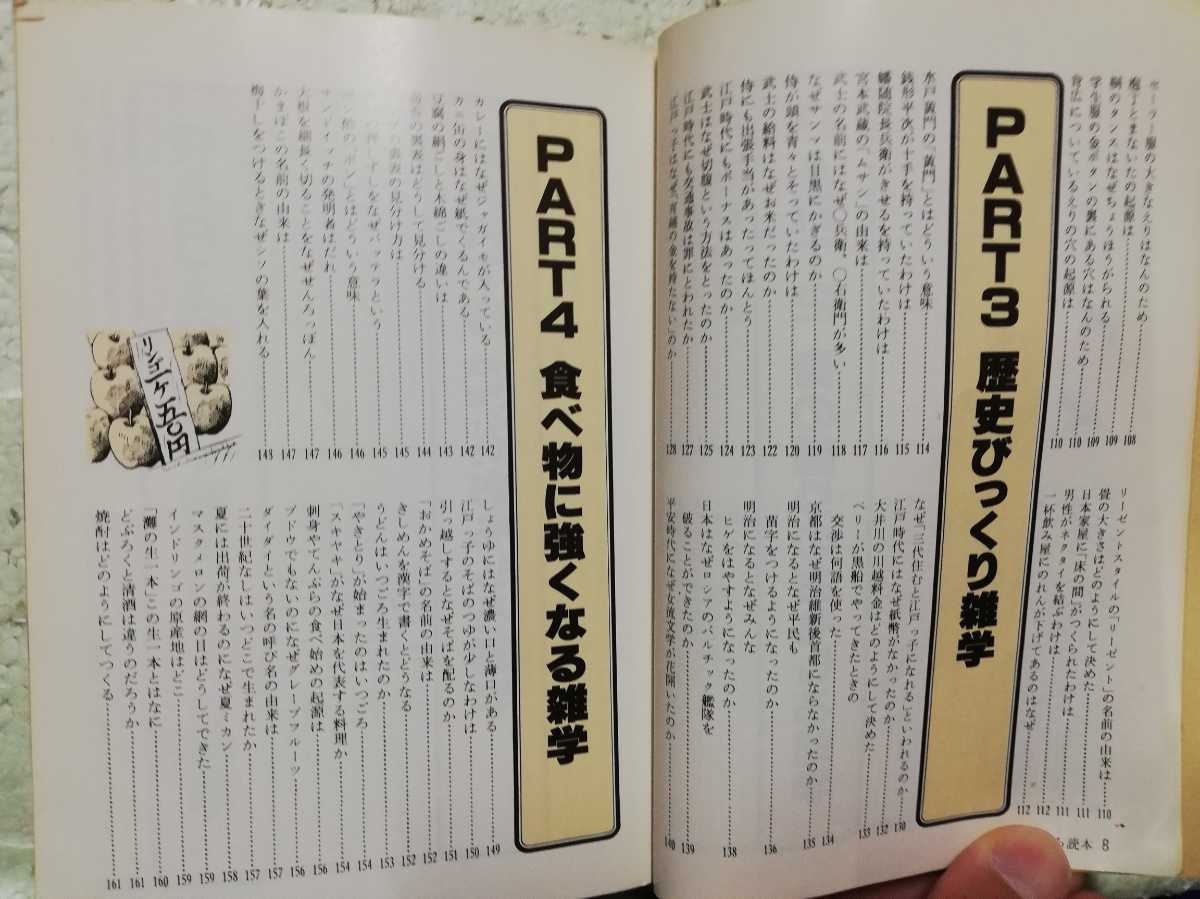 セーラー服の大きなえりはなんのため……108
庖丁とまないたの起源は……109
桐のタンスはなぜちょうほうがられる……109
学生服の金ボタンの裏にある穴はなんのため……110
背広についているえりの穴の起源は……110
リーゼントスタイルの「リーゼント」の名前の由来は……110
畳の大きさはどのようにして決めた……111
日本家屋に「床の間」がつくられたわけは……111
男性がネクタイを結ぶわけは……112
一杯飲み屋にのれんが下げてあるのはなぜ……112
PART3 歴史びっくり雑学
水戸黄門の「黄門」とはどういう意味……114
銭形平次が十手を持っていたわけは……115
幡随院長兵衛がきせるを持っていたわけは……116
宮本武蔵の「ムサシ」の由来は……117
武士の名前にはなぜ〇兵衛、〇右衛門が多い……118
なぜサンマは目黒にかぎるのか……119
侍が頭を青々とそっていたわけは……120
武士の給料はなぜお米だったのか……122
侍にも出張手当があったってほんとう……123
江戸時代にもボーナスはあったのか……124
武士はなぜ切腹という方法をとったのか……125
江戸時代にも交通事故は罪にとわれたか……127
江戸っ子はなぜ、宵越の金を持たないのか……128
なぜ「三代住むと江戸っ子になれる」といわれるのか……130
江戸時代にはなぜ紙幣がなかったのか……132
大井川の川越料金はどのようにして決めた……133
ペリーが黒船でやってきたときの
交渉は何語を使った……134
京都はなぜ明治維新後首都にならなかったのか……135
明治になるとなぜ平民も
苗字をつけるようになったのか……136
明治になるとなぜみんな
ヒゲをはやすようになったのか……138
日本はなぜロシアのバルチック艦隊を
破ることができたのか……139
平安時代になぜ女流文学が花開いたのか……140
読本 8
PART4 食べ物に強くなる雑学
カレーにはなぜジャガイモが入っている……142
カニ缶の身はなぜ紙でくるんである……142
豆腐の絹ごしと木綿ごしの違いは……143
の裏表はどうして見分ける……144
の裏表の見分け方は……145
しずしをなぜバッテラという……145
ン酢の「ポン」とはどういう意味……146
サンドイッチの発明者はだれ……146
大根を細長く切ることをなぜせんろっぽん……147
かまぼこの名前の由来は……147
梅干しをつけるときなぜシソの葉を入れる……148
リンゴ一ケ 五〇円
しょうゆにはなぜ濃い口と薄口がある……149
江戸っ子のそばのつゆが少しなわけは……150
引っ越しするとなぜそばを配るのか……151
「おかめそば」の名前の由来は……152
きしめんを漢字で書くとどうなる……152
うどんはいつごろ生まれたのか……153
「やきとり」が始まったのはいつごろ……154
「スキヤキ」がなぜ日本を代表する料理か……154
刺身やてんぷらの食べ始めの起源は……156
ブドウでもないのになぜグレープフルーツ……156
ダイダイという名の呼び名の由来は……157
二十世紀なしはいつどこで生まれたか……157
夏には出荷が終わるのになぜ夏ミカン……158
マスクメロンの網の目はどうしてできた……159
インドリンゴの原産地はどこ……159
「灘の生一本」この生一本とはなに……160
どぶろくと清酒は違うのだろうか……161
焼酎はどのようにしてつくる……161